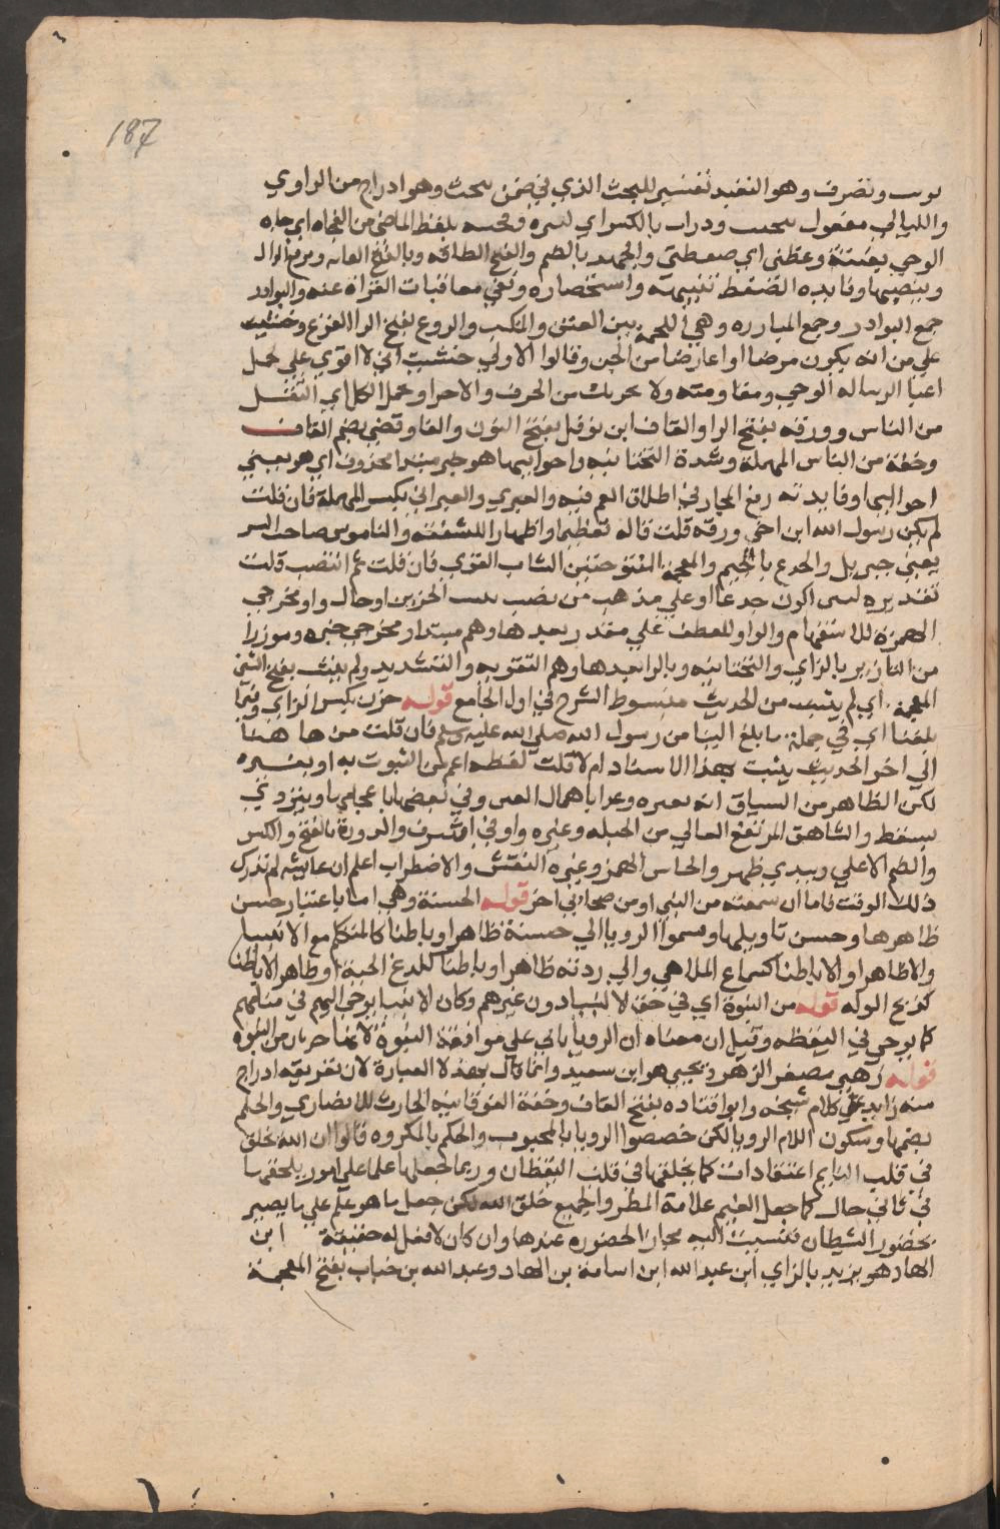 187
وتصرف وهو التعبد تفسير للتحنث الذي في ضمن يتحنث وهو ادراج من الراوي
والليالي مفعول يتحنث وذوات بالكسر اي كثيرة وفجئه بلفظ الماضي من الفجاه اي جاه
الوحي بغتتة وغطني اي ضغطني والجهد بالضم والفتح الطاقه وبالفتح الغايه وبرفع الدال
وبنصبها وفايدة الضغط تنبيهه واستحضاره ونفي منافيات القراة عنه والبوادر
جمع البوادر وجمع البادره وهي اللحمة بين العنق والمنكب والروع بفتح الرا الفزع وخشيت
علي من انه يكون مرضا او عارضا من الجن وقالوا الاولي خشيت اني لا اقوي علي حمل
اعبا الرساله الوحي ومقاومته ولا يحزنك من الحزن والاخزا وحمل الكل اي الثقل
من الناس وورقه بفتح الرا والقاف ابن نوفل بفتح النون والفا وقصي بضم القاف
وخفة من الناس المهملة وشدة التحتانيه واخوا ابيها هو خبر مبتدا محذوف اي هو يعني
اخوا ابيها وفايدته رفع المجاز في اطلاق العم فيه والعبري والعبراني بكسر المهملة فان قلت
لم يكن رسول الله ابن اخي ورقه قلت قاله تعظيما واظهارا للشفقه والناموس صاحب السر
يعني جبريل والجذع بالجيم والمعجمة المفتوحتين الشاب القوي فان قلت ثم انتصب قلت
تقديره ليتني اكون جذعا او علي مذهب من نصب بليت الجزين او حال واو مخرجي
الهمزة للاستفهام والواو للعطف علي مقدر بعدها وهم مبتدا ومخرجي خبره وموزرا
من التازير بالزاي والتحتانيه وبالرا بعدها وهم التقويه والتشديد ولم ينشب بفتح الشين
المعجمة اي لم يلبث من الحديث مبسوط الشرح في اول الجامع قوله حزن بكسر الزاي وفيما
بلغنا اي في جملة ما بلغ الينا من رسول الله صلي الله عليه وسلم فان قلت من ها هنا
الي اخر الحديث يثبت بهذا الاسناد ام لا قلت لفظه اعم من الثبوت به او بغيره
لكن الظاهر من السياق انه بغيره وعدا باهمال العين وفي بعضها باعجامها ويتردي
يسقط والشاهق المرتفع العالي من الجبل وغيره واوفي اشرف والذروة بالفتح والكسر
والضم الاعلي وتبدي ظهر والجاش الهمز وغيره النفس والاضطراب اعلم ان عايشه لم تدرك
ذلك الوقت فاما ان سمعته من النبي او من صحابي اخر قوله الحسنة وهي اما باعتبار حسن
ظاهرها وحسن تاويلها وقسموا الرويا الي حسنة ظاهرا وباطنا كالتكلم مع الانبيا
والا ظاهرا والا باطنا كسماع الملاهي والي ردية ظاهرا وباطنا كلدغ الحية او ظاهرا لا باطنا
كذبح الولد قوله من النبوة اي في حق الانبيا دون غيرهم وكان الانبيا يوحي اليهم في منامهم
كما يوحي في اليقظه وقيل ان معناه ان الرويا تاتي علي موافقة النبوة لانها جزء من النبوه
قوله زهير مصغر الزهر ويحيي هو ابن سعيد وانما قال بهذه العبارة لان تعريفه ادراج
منه زايد علي كلام شيخه وابو قتاده بفتح القاف وخفة الفوقانيه الحارث الانصاري والحلم
بضمها وسكون اللام الرويا لكن خصصوا الرويا بالمحبوب والحلم بالمكروه قالوا ان الله يخلق
في قلب النايم اعتقادات كما يخلقها في قلب اليقظان وربما جعلها علما علي امور يلحقها
في ثاني حال كما جعل الغيم علامة للمطر والجميع خلق الله لكن جعل ما هو علم علي ما يضر
بحضور الشيطان فنسبت اليه مجازا لحضوره عندها وان كان لا فعل له حقيقة ابن
الهاد هو يزيد بالزاي ابن عبد الله ابن اسامة بن الهاد وعبد الله بن خباب بفتح المعجمة